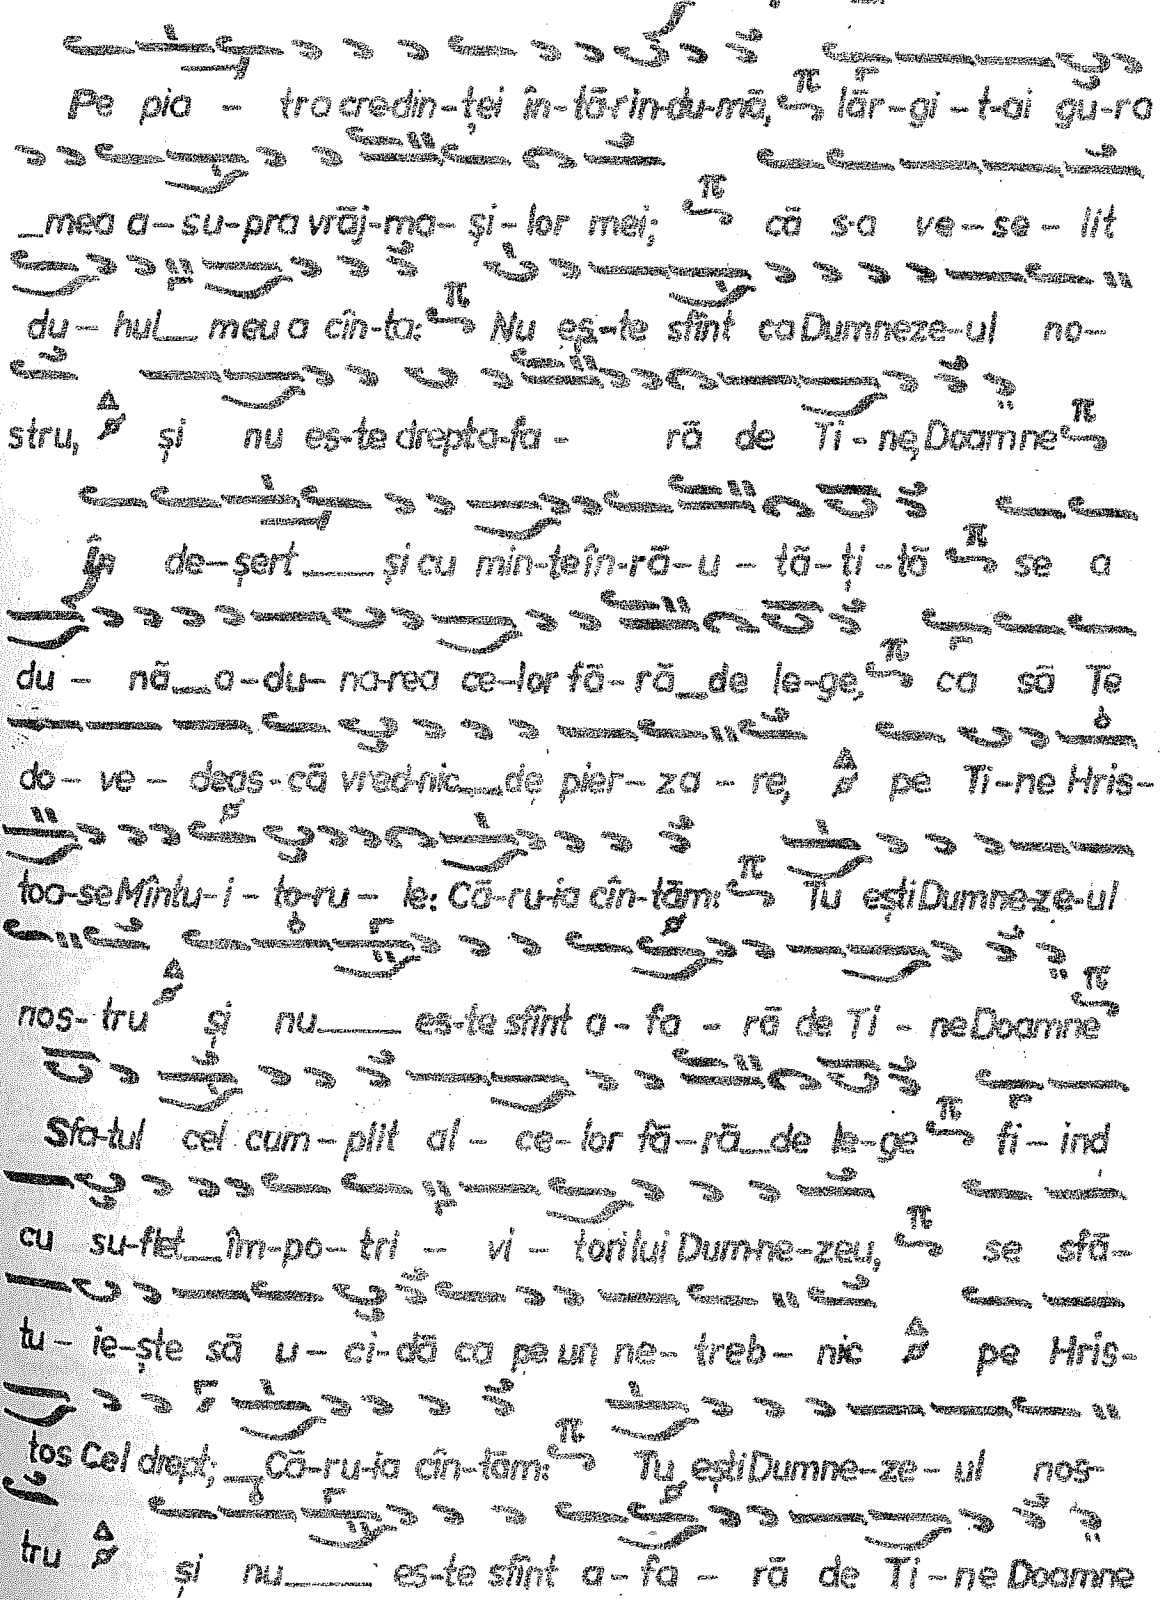 Pe pia - tra credin-ței în-tărin-du-mă, π lăr-gi-t-ai gu-ra
_mea a-su-pra vrăj-ma-și-lor mei; π că s-a ve-se-lit
du-hul_ meu a cîn-ta: π Nu es-te sfînt ca Dumneze-ul no-
stru, Δ și nu es-te drept a-fa- ră de Ti-ne, Doamne π
În de-șert___ și cu min-te în-ră-u-tă-ți-tă π se a
du-nă_a-du-na-rea ce-lor fă-ră_de le-ge, π ca să Te
do-ve-deas-că vred-nic__de pier-za-re, Δ pe Ti-ne Hris-
toa-se Mîntu-i-to-ru-le: Că-ru-ia cîn-tăm: π Tu ești Dumne-ze-ul
nos-tru Δ și nu___ es-te sfînt a-fa-ră de Ti-ne Doamne π
Sfa-tul cel cum-plit al-ce-lor fă-ră_de le-ge π fi-ind
cu su-flet_îm-po-tri-vi-tori lui Dum-ne-zeu, π se sfă-
tu-ie-ște să u-ci-dă ca pe un ne-treb-nic Δ pe Hris-
tos Cel drept; _Că-ru-ia cîn-tăm: π Tu ești Dumne-ze-ul nos-
tru Δ și nu____ es-te sfînt a-fa-ră de Ti-ne Doamne